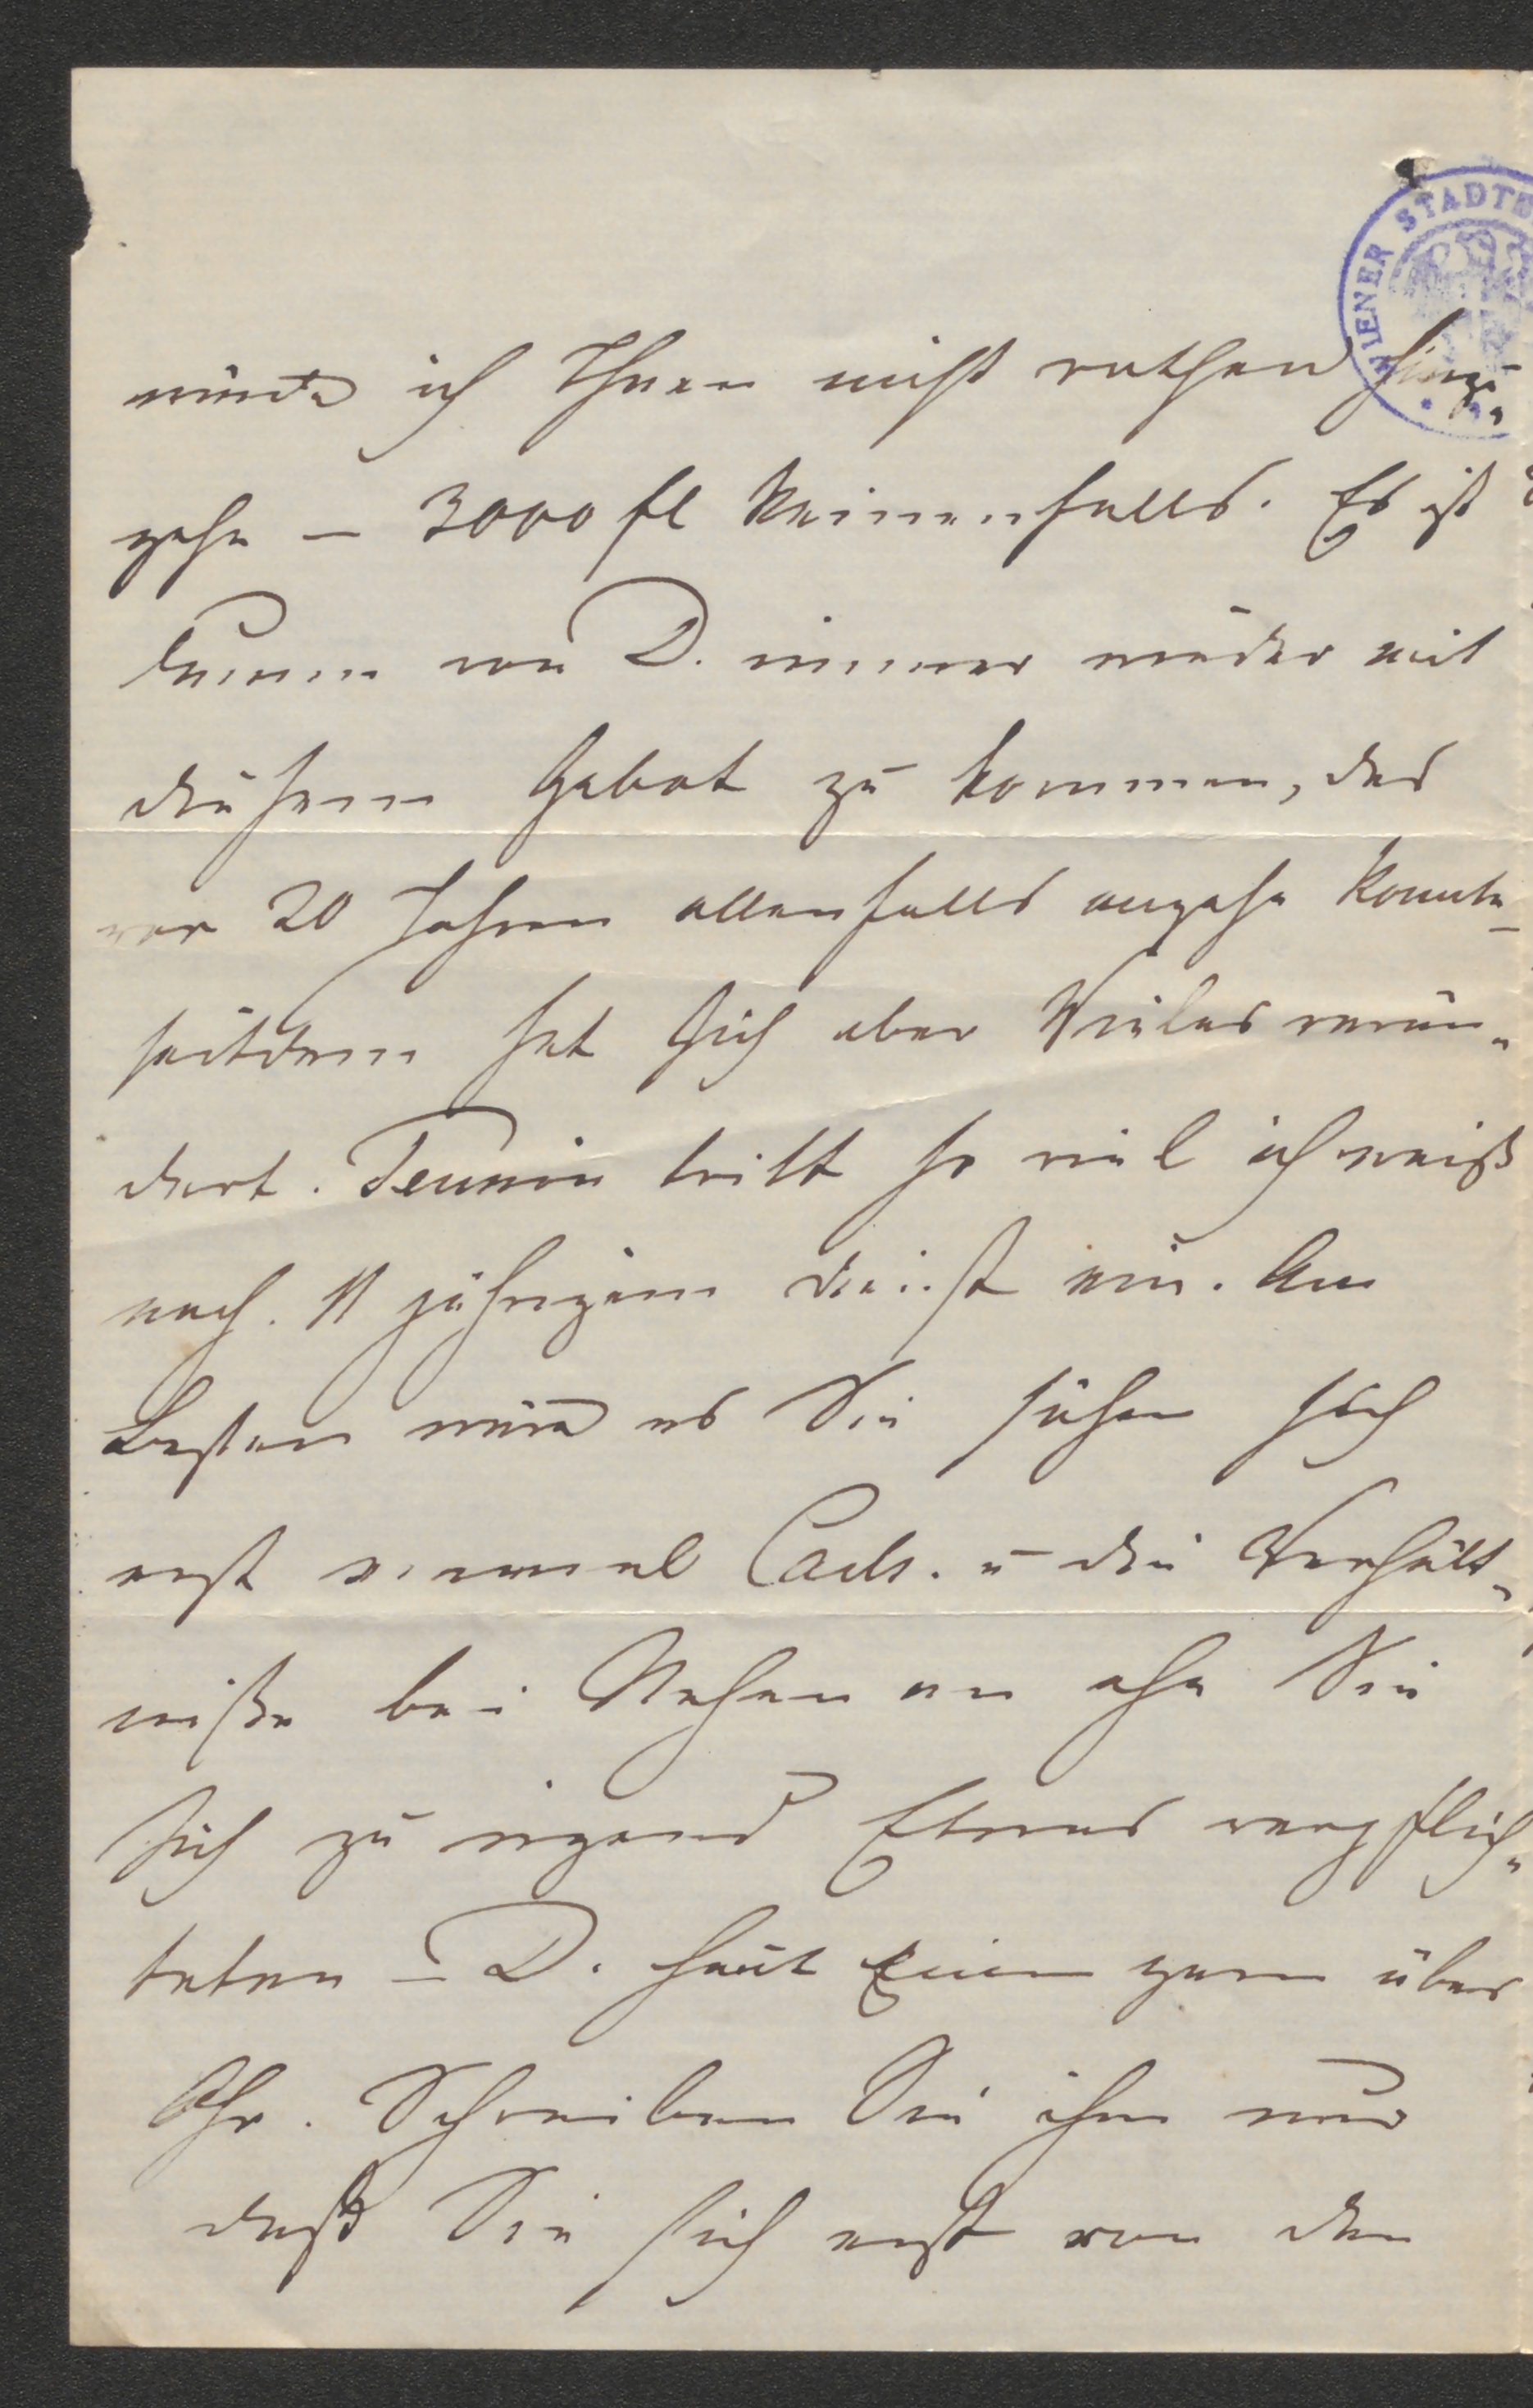 WIENER STADTB
würde ich Ihnen nicht rathen hinzu-
gehn – 3000 fl keinenfalls. Es ist
dumm von D. immer wieder mit
diesem Gebot zu kommen, das
vor 20 Jahren allenfalls angehn konnte –
seitdem hat sich aber Vieles verän-
dert. Pension tritt so viel ich weiß
nach 11 jährigem Dienst ein. Am
Besten wäre es Sie sähen sich
erst einmal Carls. u die Verhält-
niße bei Nahem an ehe Sie
sich zu irgend Etwas verpflich-
teten – D. haut Einen gern über's
Ohr. Schreiben Sie ihm nur
daß Sie sich erst von den